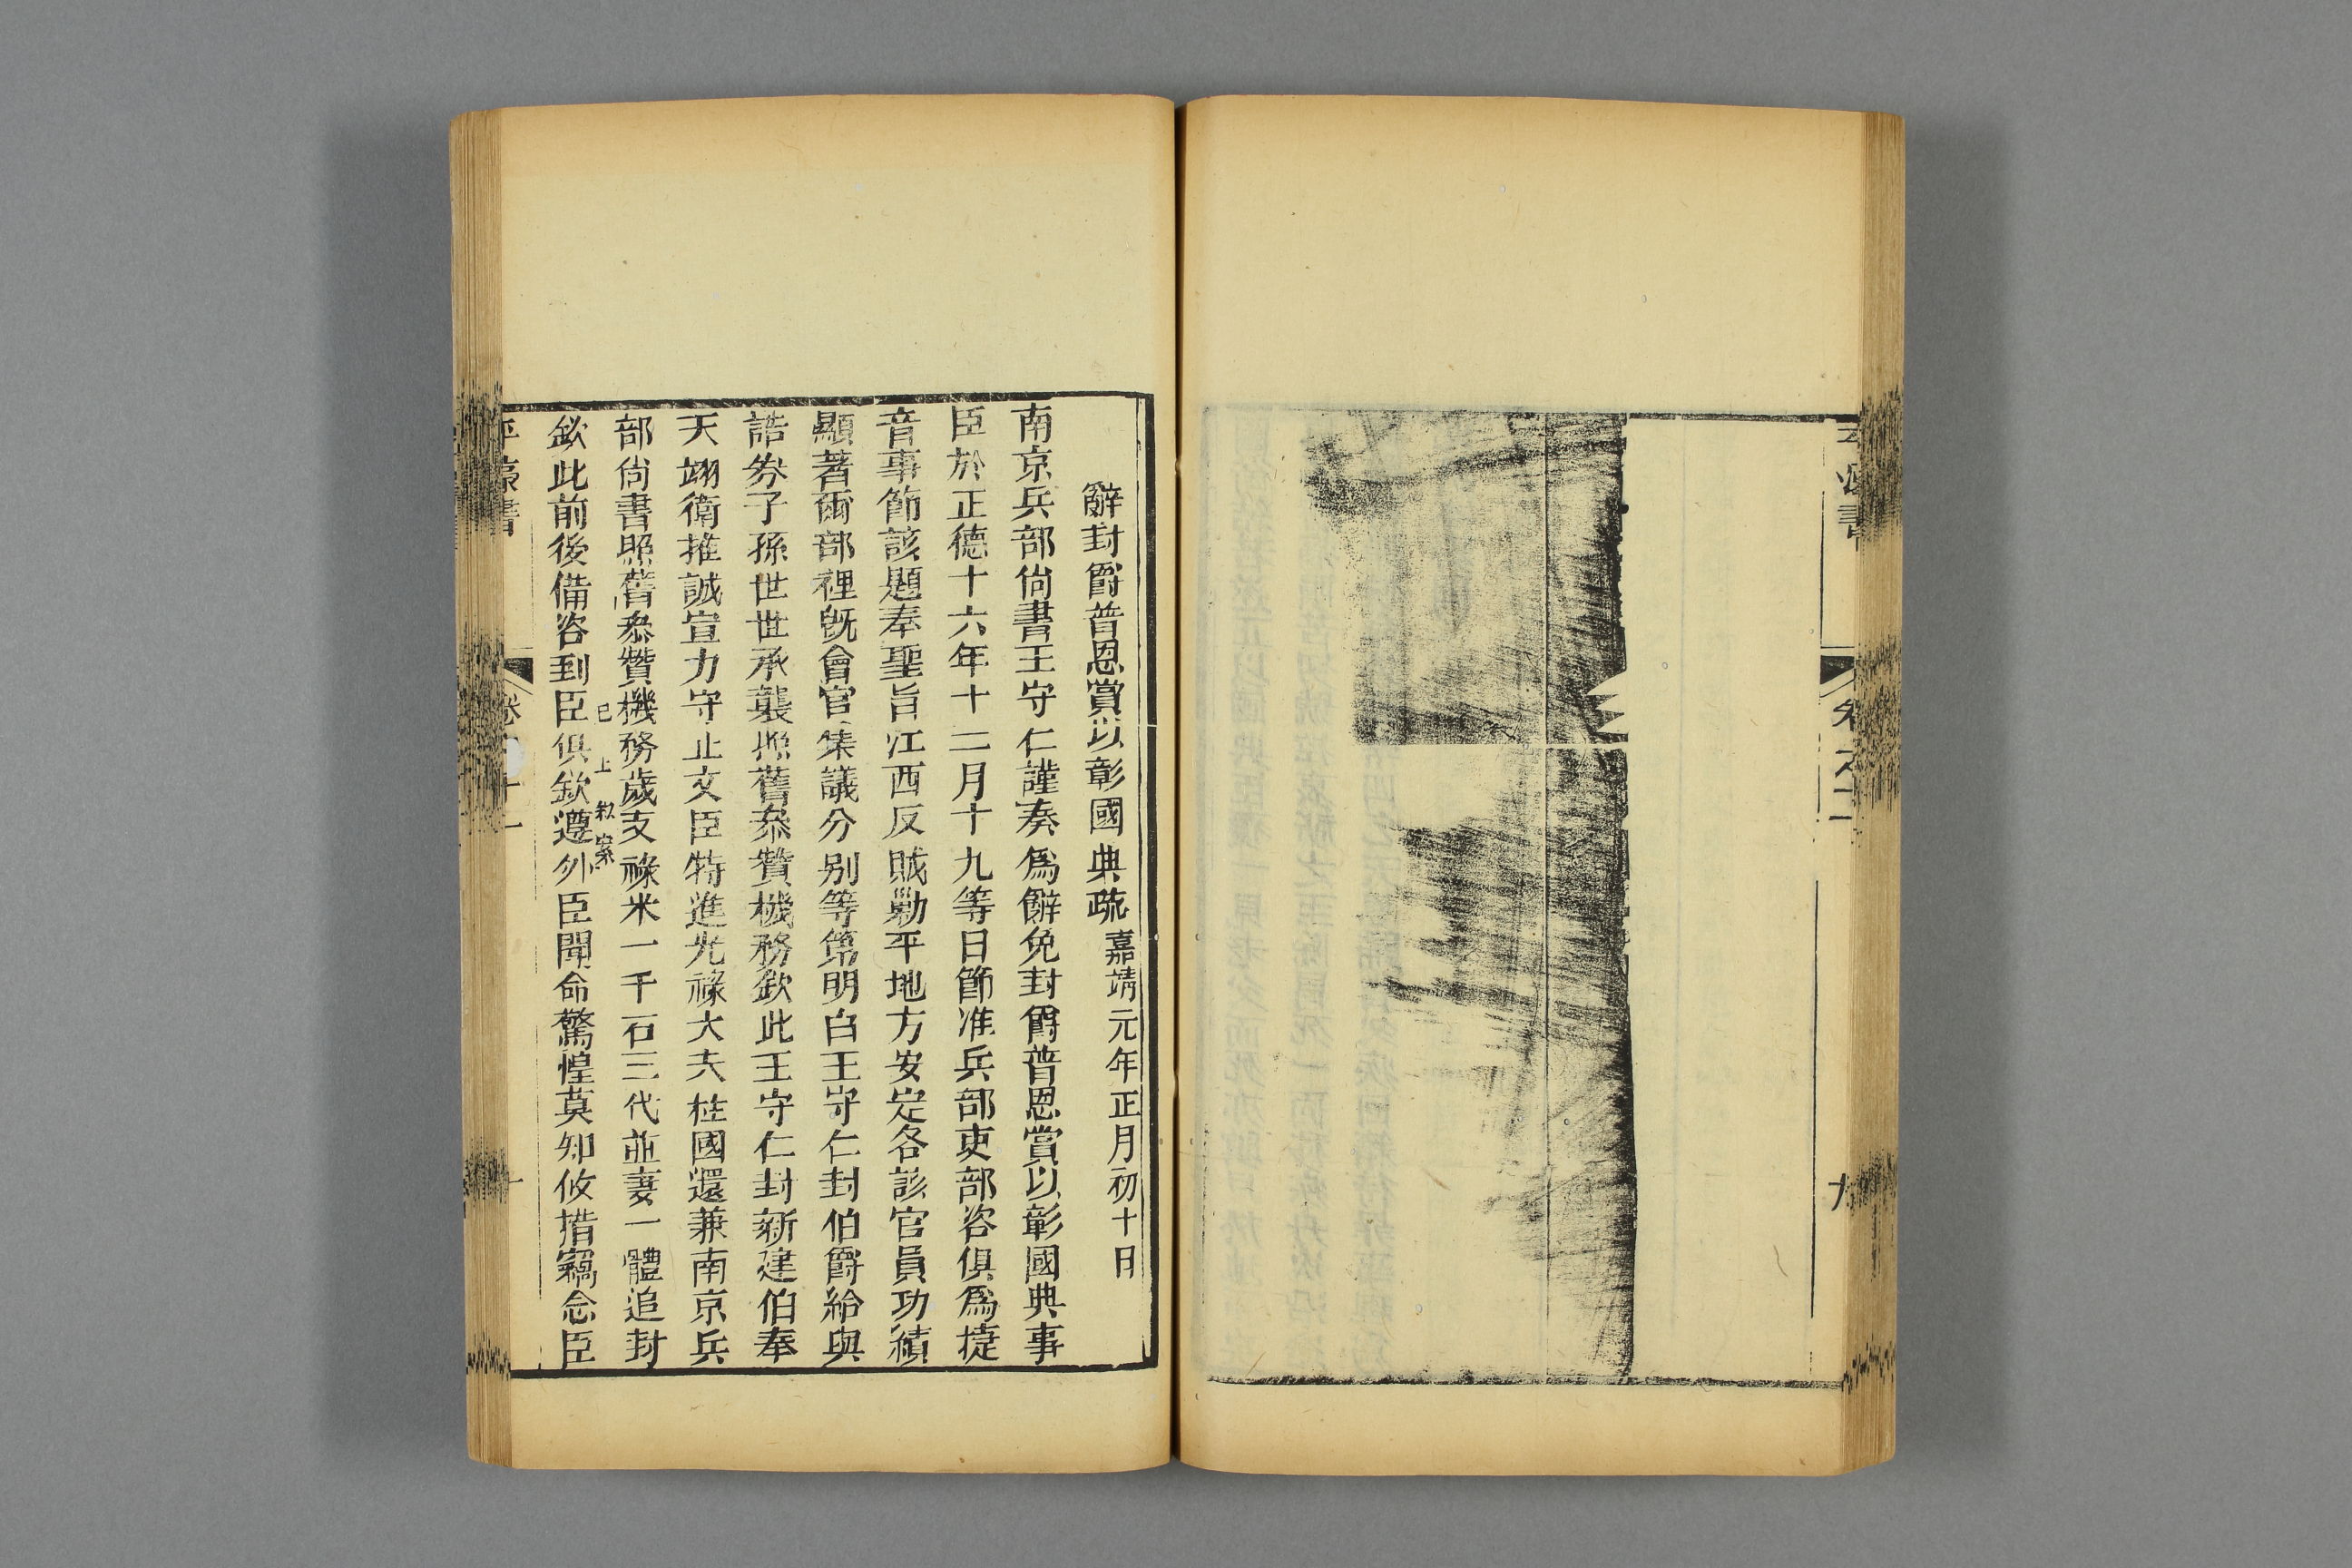 平濠書
卷之二
九
辭封爵普恩賞以彰國典疏 嘉靖元年正月初十日
南京兵部尙書王守仁謹奏爲辭免封爵普恩賞以彰國典事
臣於正德十六年十二月十九等日節准兵部吏部咨俱爲捷
音事節該題奉聖旨江西反賊勦平地方安定各該官員功績
顯著爾部裡旣會官集議分别等第明白王守仁封伯爵給與
誥券子孫世世承襲照舊叅贊機務欽此王守仁封新建伯奉
天翊衛推誠宣力守正文臣特進光祿大夫柱國還兼南京兵
部尙書照舊叅贊機務歲支祿米一千石三代並妻一體追封
已上叙案
欽此前後備咨到臣俱欽遵外臣聞命驚惶莫知攸措竊念臣
平濠書